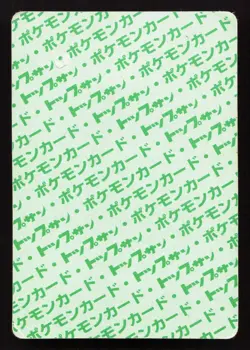 ポケモンカード・トップサン
トップサン・ポケモンカード
ポケモンカード・トップサン・ポケモン
トップサン・ポケモンカード・
ポケモンカード・トップサン
・トップサン・ポケモンカード
・ポケモンカード・トップサン
カード・トップサン・ポケモンカード
トップサン・ポケモンカード・
ポケモンカード・トップサン
カード・トップサン・ポケモン
・ポケモンカード・トップサン
ポケモンカード・トップサン